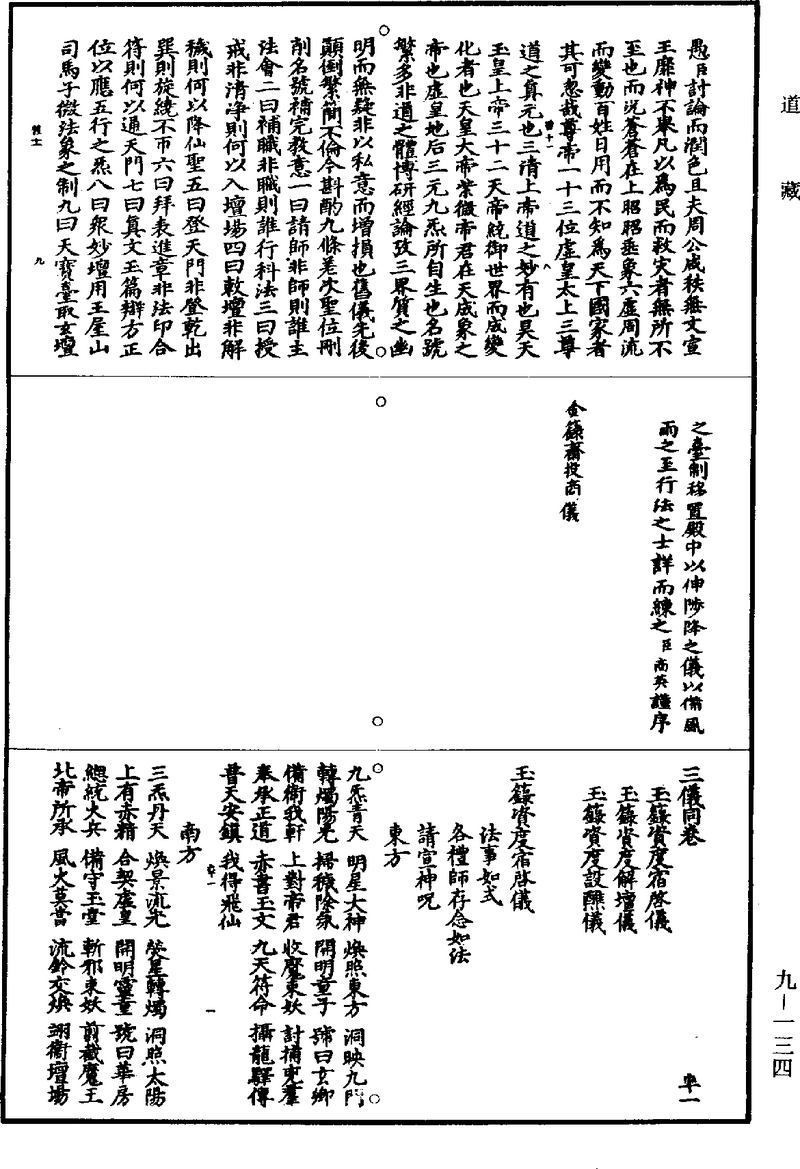 道藏
愚臣討論而潤色且夫周公咸秩無文宣
王靡神不舉凡以為民而救灾者無所不
至也而況蒼蒼在上昭昭垂象六虛周流
而變動百姓日用而不知為天下國家者
其可忽哉尊帝一十三位虛皇太上三尊
道之真元也三清上帝道之妙有也昊天
玉皇上帝三十二天帝統御世界而成變
化者也天皇大帝紫微帝君在天成象之
帝也虛皇地后三元九炁所自生也名號
繁多非道之體博研經論攷三界質之幽
明而無疑非以私意而增損也舊儀先後
顛倒繁簡不倫今斟酌九條差次聖位刪
削名號補完教意一曰請師非師則誰主
法會二曰補職非職則誰行科法三曰授
戒非清淨則何以入壇場四曰敕壇非解
穢則何以降仙聖五曰登天門非登乾出
巽則旋繞不帀六曰拜表進章非法印合
符則何以通天門七曰真文玉篇辯方正
位以應五行之炁八曰衆妙壇用王屋山
司馬子微法象之制九曰天寶臺取玄壇
九
之臺制移置殿中以伸陟降之儀以備風
雨之至行法之士詳而練之臣商英謹序
金籙齋投簡儀
三儀同卷
率一
玉籙資度宿啓儀
玉籙資度解壇儀
玉籙資度設醮儀
玉籙資度宿啓儀
法事如式
各禮師存念如法
請宣神呪
東方
九炁青天 明星大神 煥照東方 洞映九門
轉燭陽光 掃穢除氛 開明童子 號曰玄鄉
備衛我軒 上對帝君 收魔束妖 討捕兇羣
奉承正道 赤書玉文 九天符命 攝龍驛傳
普天安鎮 我得飛仙
南方
一
三炁丹天 煥景流光 熒星轉燭 洞照太陽
上有赤精 合契虛皇 開明靈童 號曰華房
總統火兵 備守玉堂 斬邪束妖 剪截魔王
北帝所承 風火莫當 流鈴交煥 翊衞壇場
九－一三四